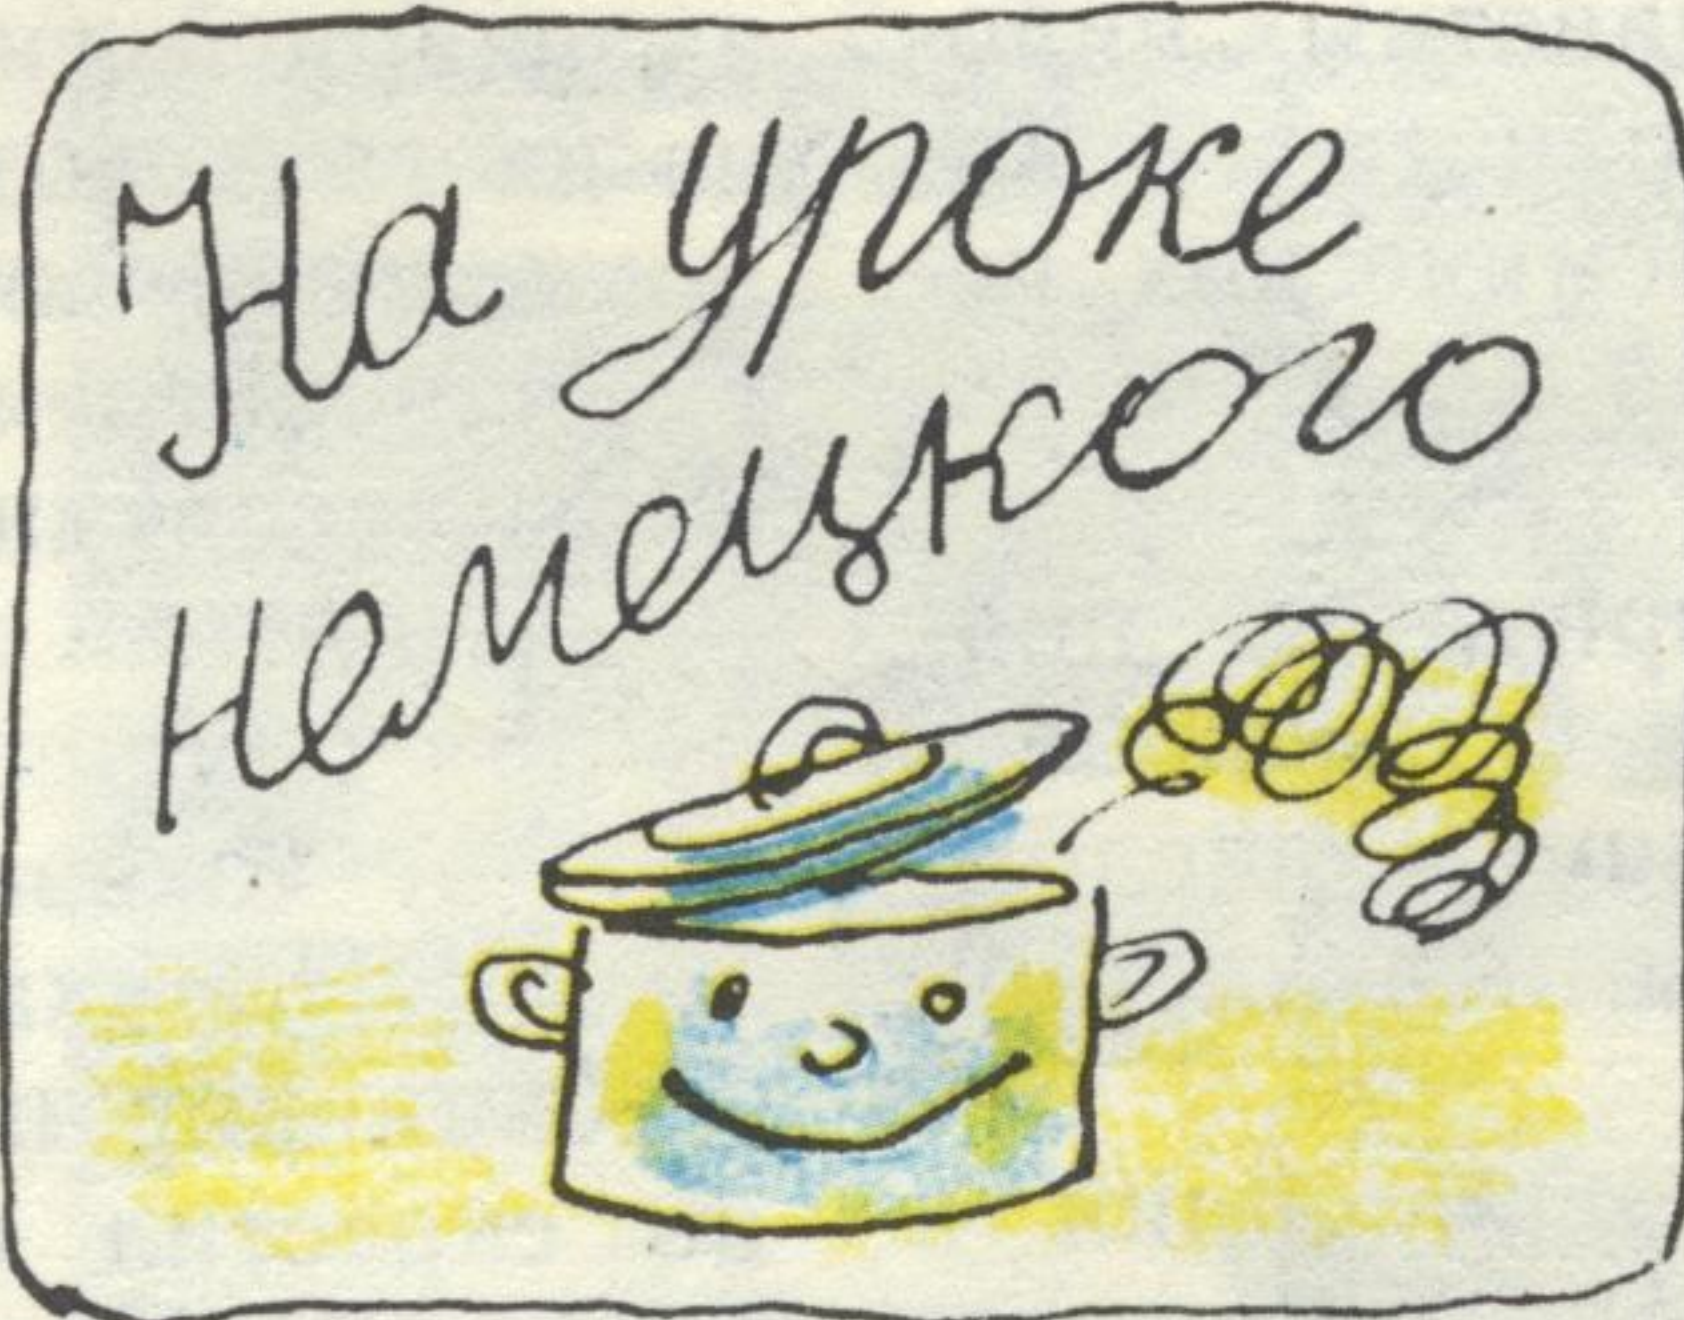 На уроке
немецкого